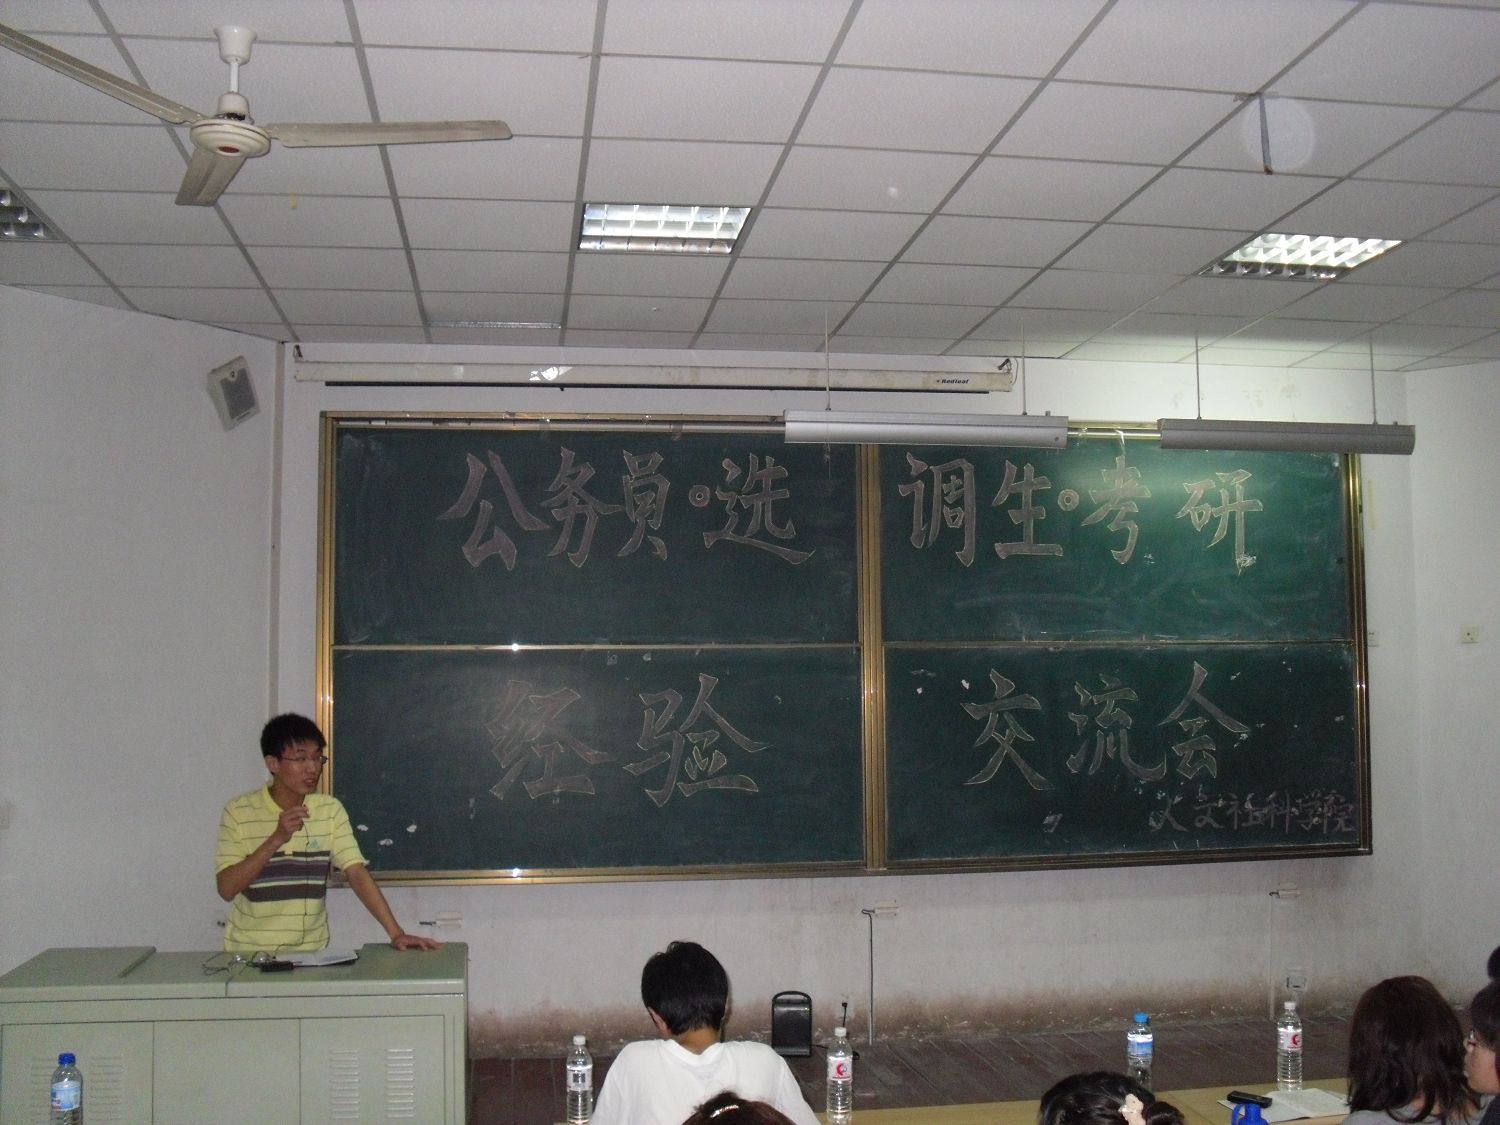 Redleaf
公务员。选调生。考研
经验交流会
人文社科学院